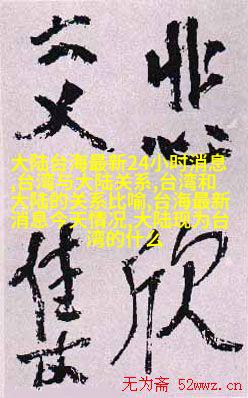 悲欣
交集
大陆台海最新24小时消息
,台湾与大陆关系,台湾和
大陆的关系比喻,台海最新
消息今天情况,大陆现为台
湾的什么
无为斋 52wwz.cn